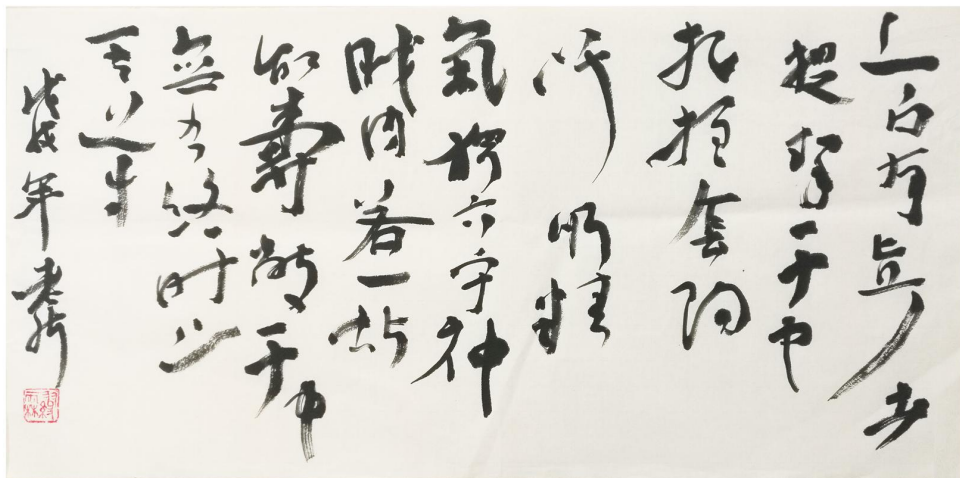 上古有真人者
提挈天地
把握陰陽
呼吸精
氣獨立守神
肌肉若一故
能壽敝天地
無有終時此
其道生
戊戌年老